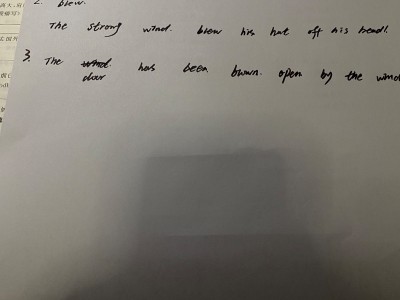 2. blew.
The strong wind. blew his hat off his head.
3. The door has been bwwn. open by the wind